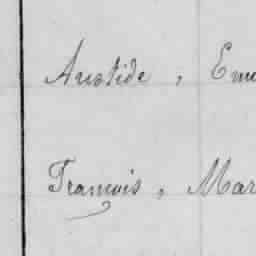 Aristide, Em
François, Mar